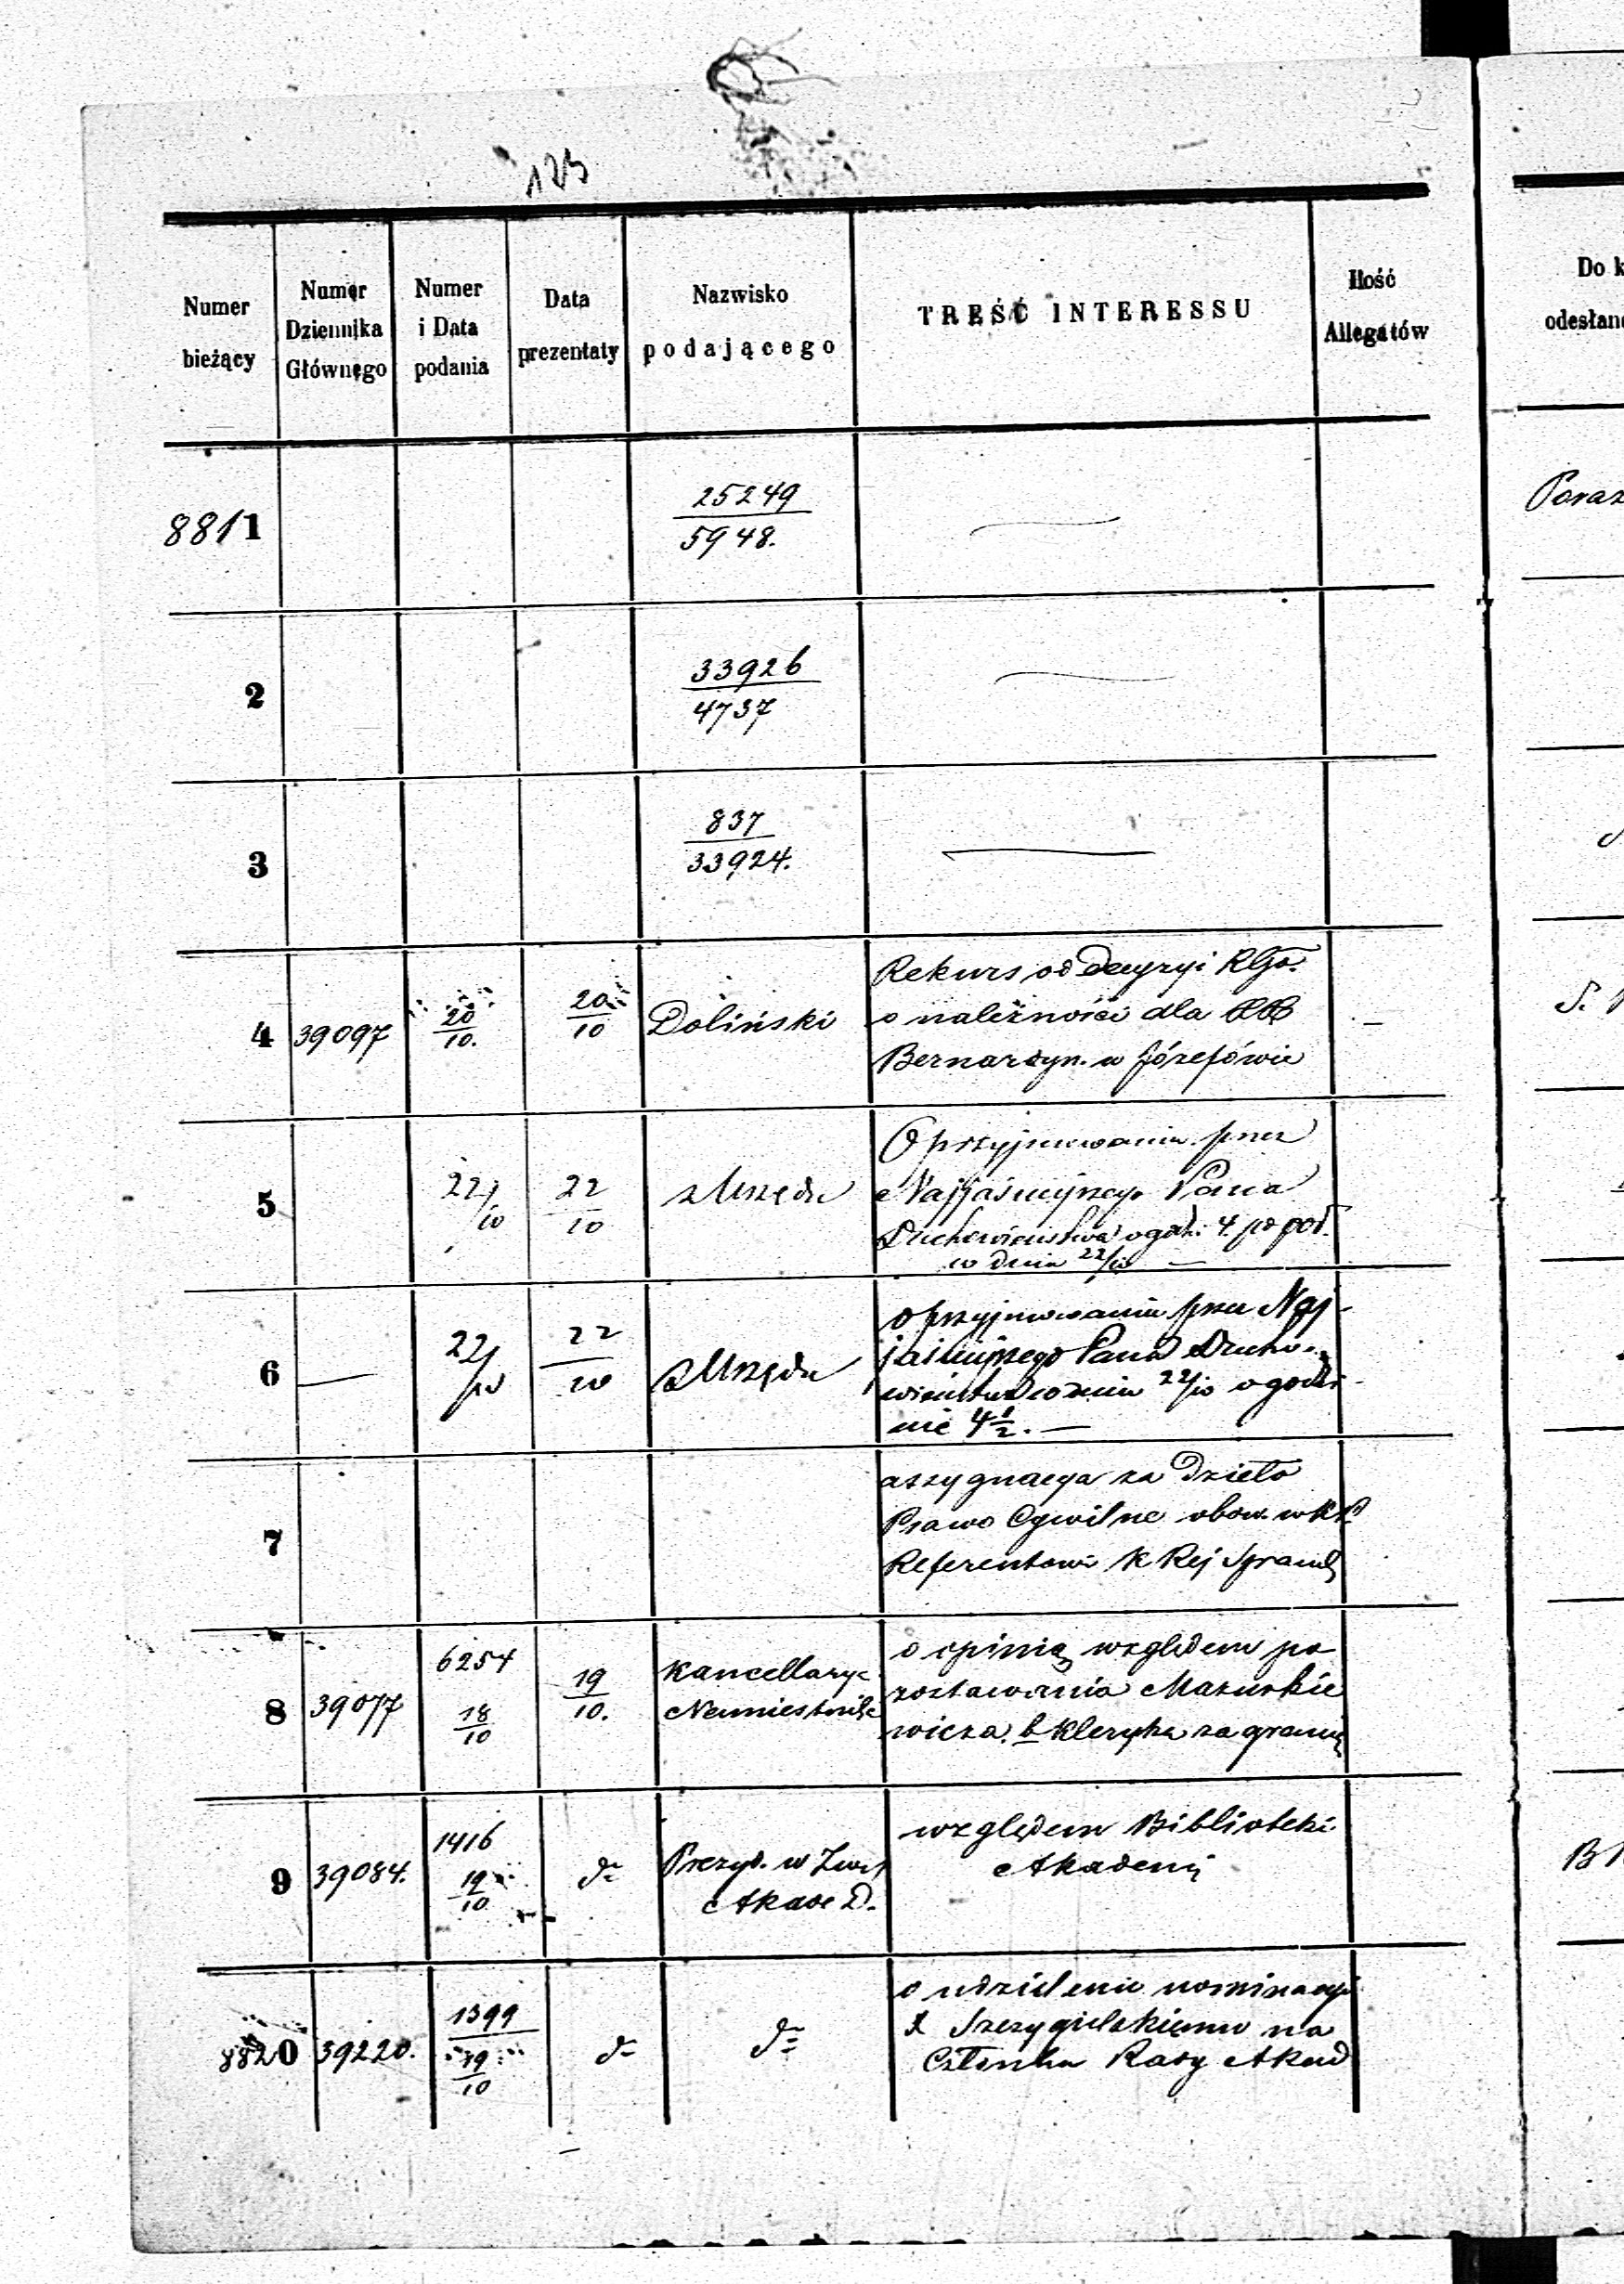 123
Numer bieżący
Numer Dziennika Głównego
Numer i Data podania
Data prezentaty
Nazwisko podającego
TREŚĆ INTERESSU
Ilość Allegatów
Do k
odesłan
8811
25249
5948.
Poraz
2
33926
4737
3
837
33924.
4
39097
20
10.
20
10
Doliński
Rekurs od decyzyi RGo.
o należności dla OO
Bernardyn. w Józefówie
5
22/10
22
10
z Urzędu
O przyjmowaniu przez
Najjaśniejszego Pana
Duchowieństwa o godz: 4 po poł.
w dniu 22/10 —
6
—
22/10
22
10
z Urzędu
o przyjmowaniu przez Naj-
jaśniejszego Pana Ducho-
wieństwa w dniu 22/10 o godzi-
nie 4½. —
7
assygnacya za dzieło
Prawo Cywilne obow. w KP
Referentowi K Rej Sprawdz
8
39077
6254
18
10
19
10.
Kancellarya
Namiestnika
o opinią względem po
zostawania Mazurkie
wicza b kleryka za granicą
9
39084.
1416
19
10
do
Prezyd. w Zwią
Akade D.
względem Biblioteki
Akademij
8820
39220.
1399
19
10
do
do
o udzielenie nominacyi
X Szczygielskiemu na
Członka Rady Akad